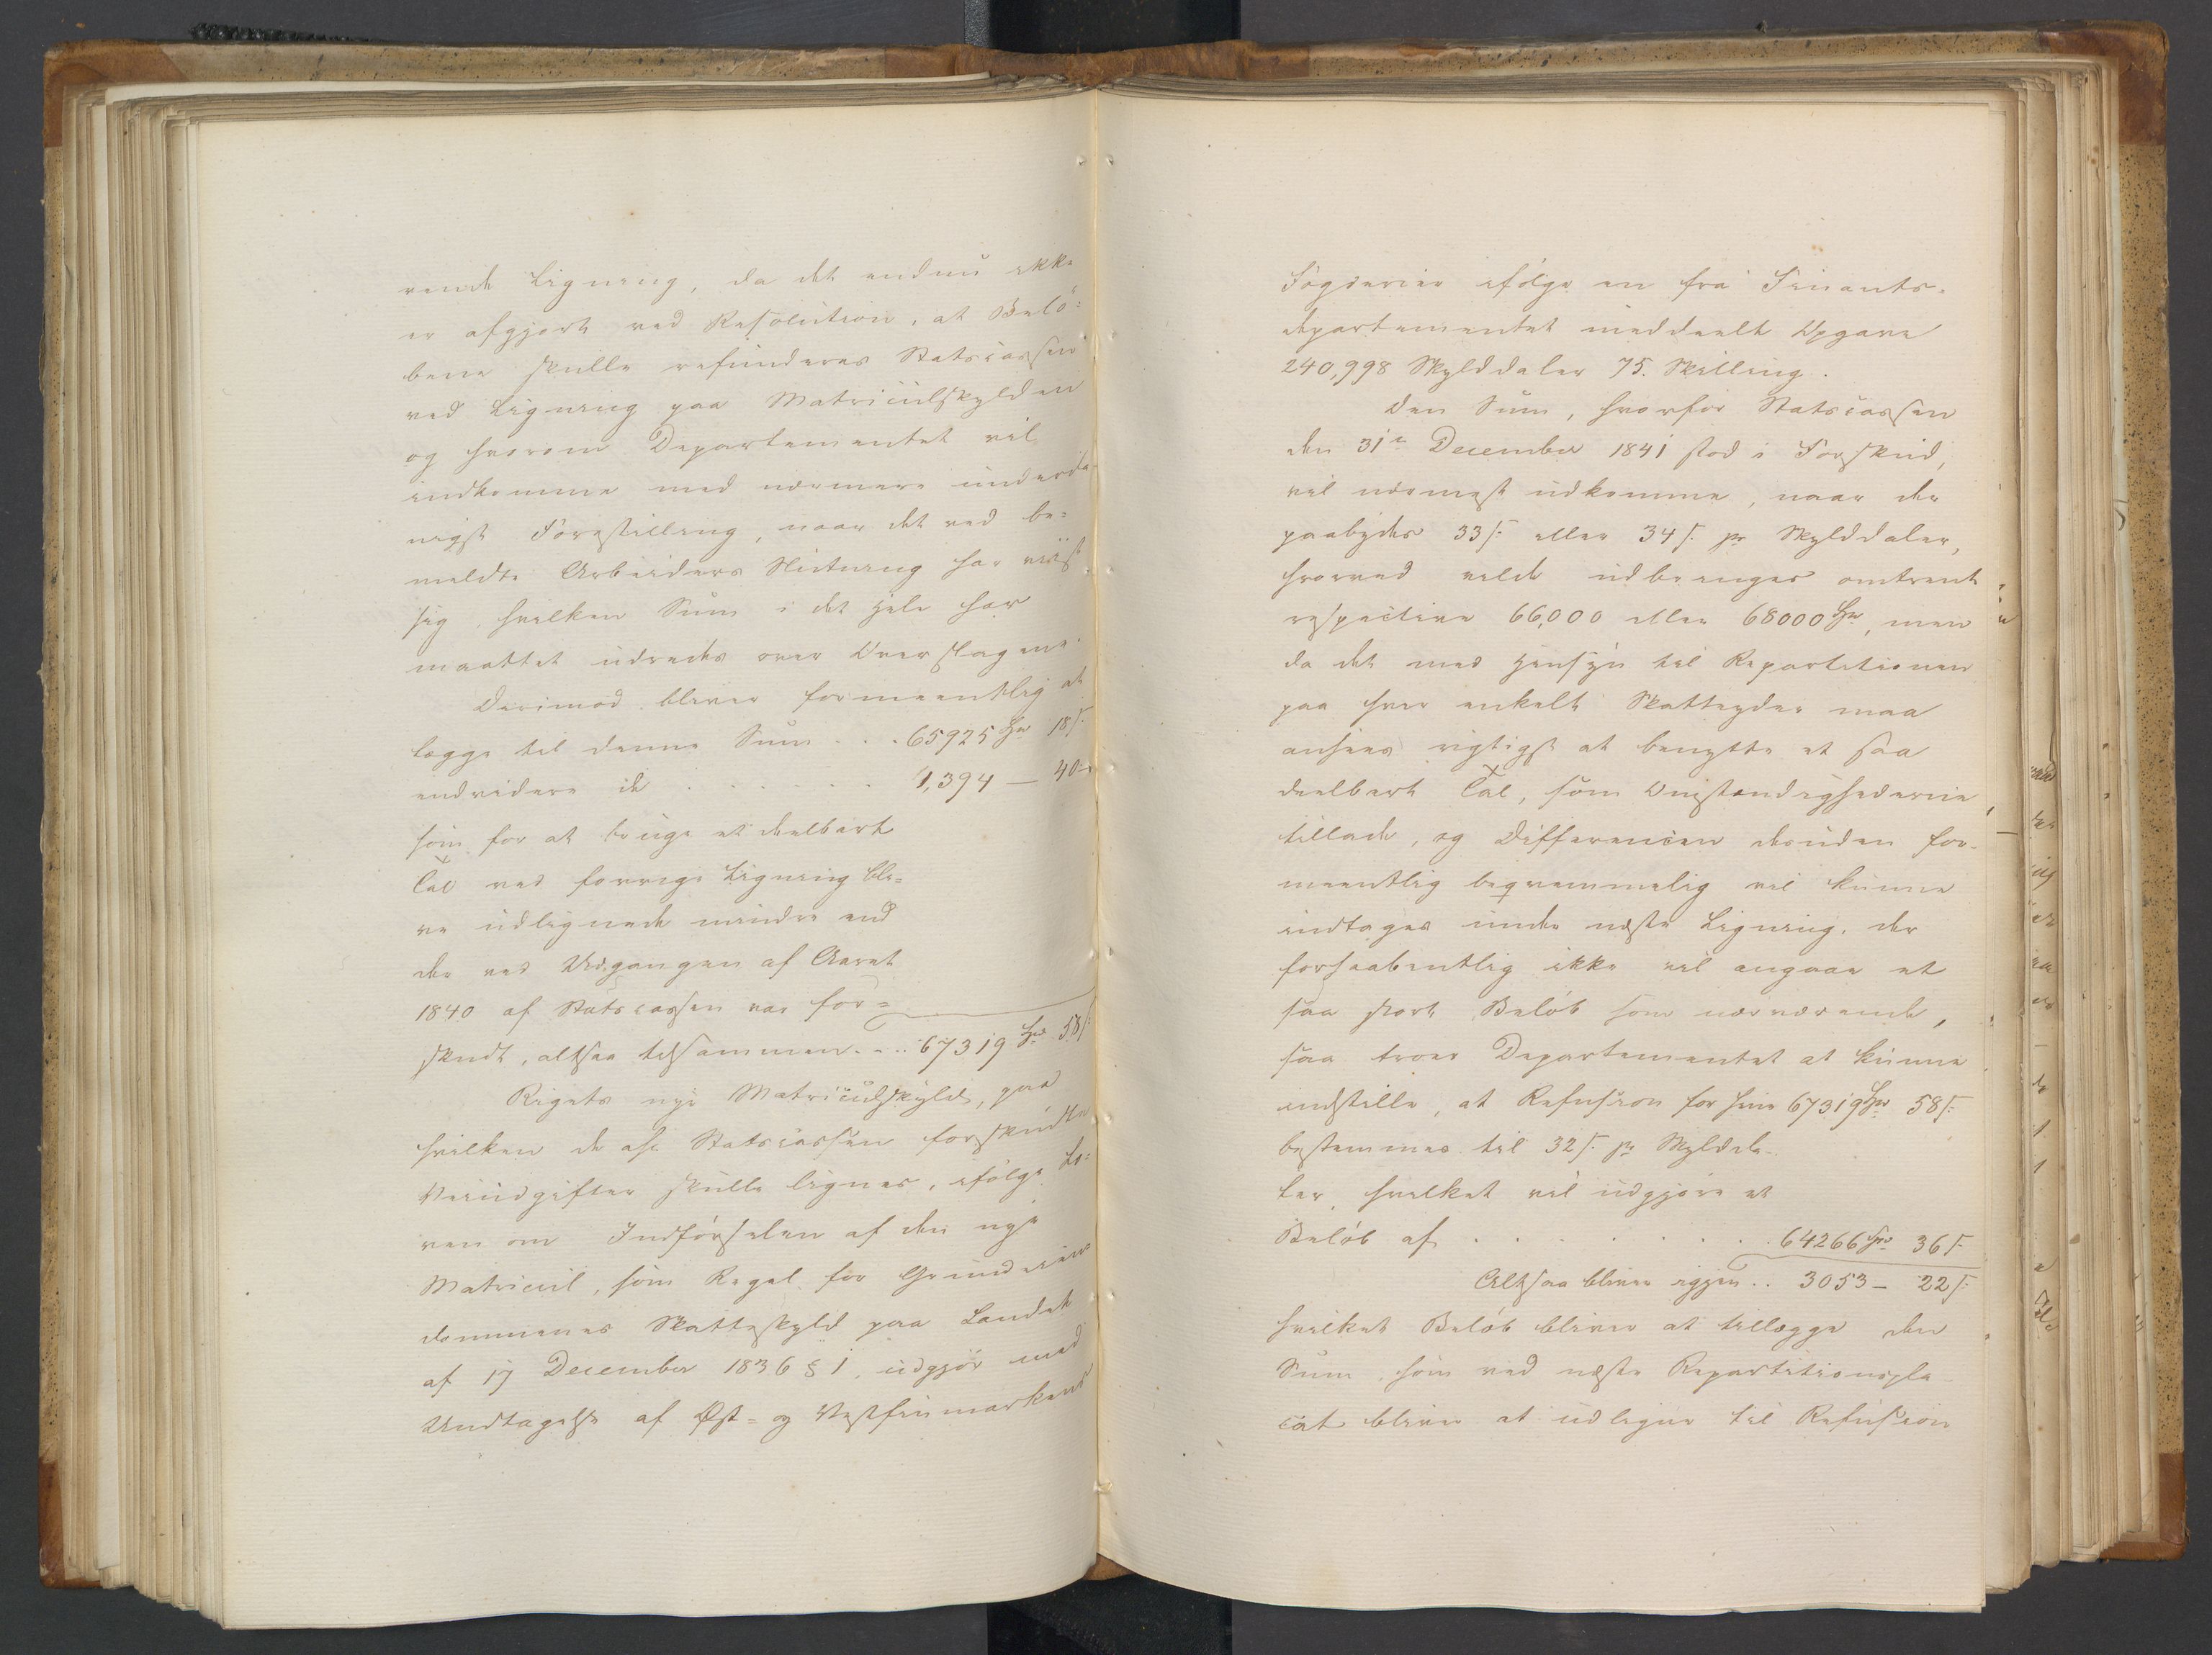 rende Ligning, da det endnu ikke
er afgjort ved Resolution, at Belö-
bene skulle refunderes Statscassen
ved Ligning paa Matriculskylden
og hvorom Departementet vil
indkomme med nærmere underda-
nigst Forestilling, naar det ved be-
meldte Arbeiders Slutning har viist
sig, hvilken Sum i det Hele har
maattet udredes over Overslagene.
Derimod bliver formeentlig at
lægge til denne Sum . . . 65925 Spd 18 s.
endvidere de . . . . . . 1,394 — 40 -
som for at bruge et deelbart
Tal ved forrige Ligning ble-
ve udlignede mindre end
der ved Udgangen af Aaret
1840 af Statscassen var for-
skudt, altsaa tilsammen . . . . 67319 Spd 58 s.
Rigets nye Matriculskyld, paa
hvilken de af Statscassen forskudte
Veiudgifter skulle lignes, ifölge Lo-
ven om Indförselen af den nye
Matricul, som Regel for Grundeien-
dommenes Skatteskyld paa Landet
af 17 December 1836 § 1, udgjör med
Undtagelse af Øst- og Vestfinmarkens
Fogderier ifölge en fra Finants-
departementet meddeelt Opgave
240,998 Skylddaler 75. Skilling.
Den Sum, hvorfor Statscassen
den 31te December 1841 stod i Forskud,
vil nærmest udkomme, naar der
paabydes 33 s. eller 34 s. pr Skylddaler,
hvorved vilde udbringes omtrent
respective 66,000 eller 68000 Spd, men
da det med Hensyn til Repartitionen
paa hver enkelt Skatteyder maa
ansees rigtigst at benytte et saa
deelbart Tal, som Omstændighederne
tillade, og Differencen desuden for-
meentlig beqvemmelig vil kunne
indtages under næste Ligning, der
forhaabentlig ikke vil angaae et
saa stort Belöb som nærværende,
saa troer Departementet at kunne
indstille, at Refusion for hine 67319 Spd 58 s.
bestemmes til 32 s. pr Skyldda-
ler, hvilket vil udgjöre et
Belöb af . . . . . . . . . 64266 Spd 36 s.
Altsaa bliver igjen . . 3053 — 22 s.
hvilket Belöb bliver at tillægge den
Sum, som ved næste Repartitionspla-
cat bliver at udligne til Refusion